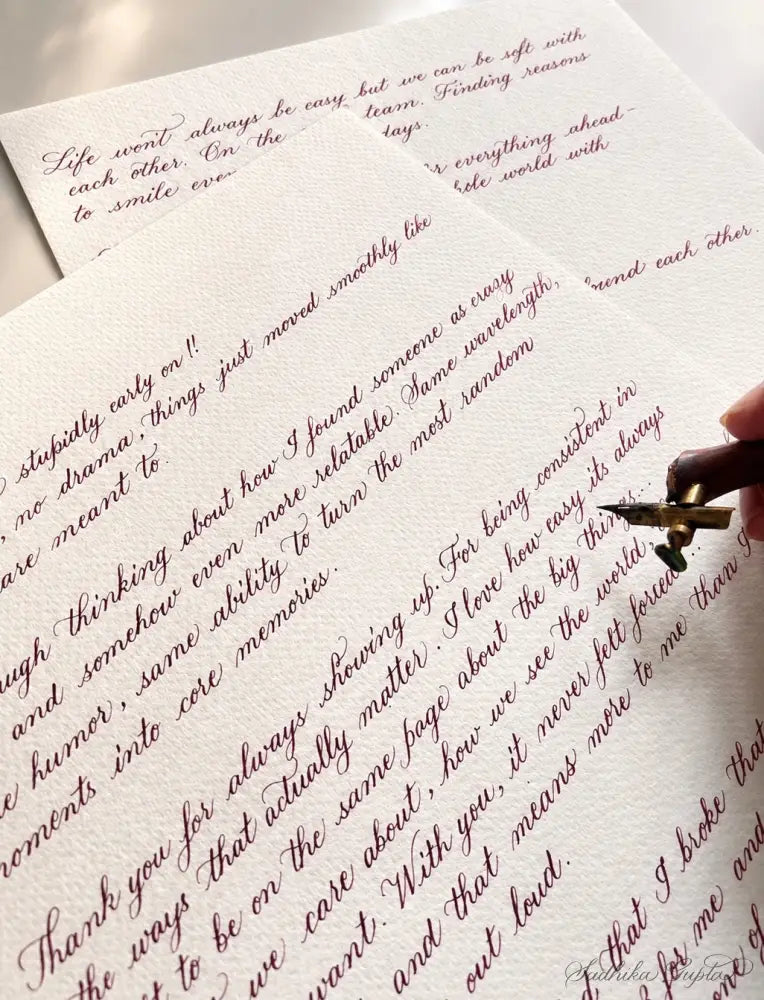 Life won't always be easy but we can be soft with
each other. On the team. Finding reasons
to smile days.
everything ahead-
world with
each other.
stupidly early on !!
, no drama, things just moved smoothly like
are meant to.
thinking about how I found someone as crazy
and somehow even more relatable. Same wavelength,
humor, same ability to turn the most random
moments into core memories.
Thank you for always showing up. For being consistent in
the ways that actually matter. I love how easy its always
to be on the same page about the big things...
we care about, how we see the world,
want. With you, it never felt forced...
and that means more to me than I
out loud.
that I broke that
for me and
of
Sadhika Gupta